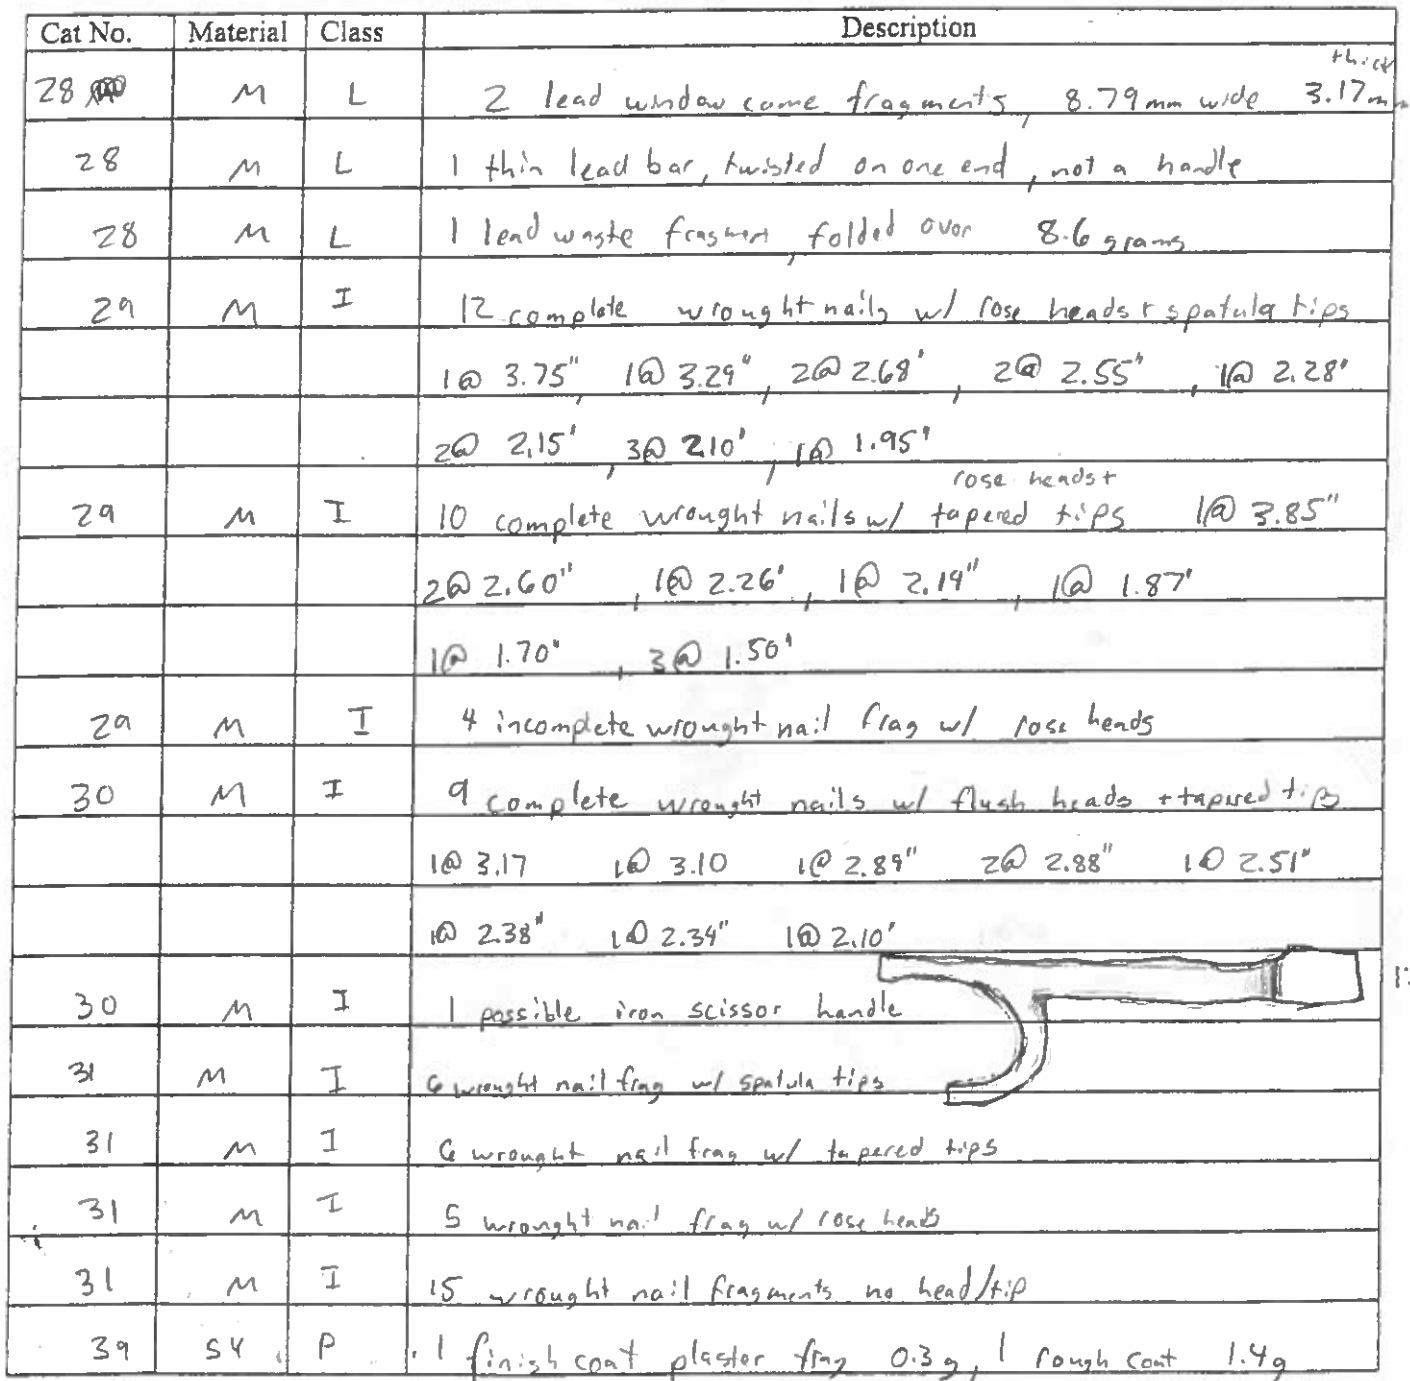 Cat No. Material Class Description
thick
28 M L 2 lead window came fragments, 8.79 mm wide 3.17mm
28 M L 1 thin lead bar, twisted on one end, not a handle
28 M L 1 lead waste fragment, folded over 8.6 grams
29 M I 12 complete wrought nails w/ rose heads + spatula tips
1@ 3.75", 1@ 3.29", 2@ 2.68', 2@ 2.55", 1@ 2.28'
2@ 2.15', 3@ 2.10', 1@ 1.95'
rose heads +
29 M I 10 complete wrought nails w/ tapered tips 1@ 3.85"
2@ 2.60", 1@ 2.26', 1@ 2.19", 1@ 1.87'
1@ 1.70", 3@ 1.50'
29 M I 4 incomplete wrought nail frag w/ rose heads
30 M I 9 complete wrought nails w/ flush heads + tapered tips
1@ 3.17 1@ 3.10 1@ 2.89" 2@ 2.88" 1@ 2.51"
1@ 2.38" 1@ 2.34" 1@ 2.10'
30 M I 1 possible iron scissor handle
31 M I 6 wrought nail frag w/ spatula tips
31 M I 6 wrought nail frag w/ tapered tips
31 M I 5 wrought nail frag w/ rose heads
31 M I 15 wrought nail fragments no head/tip
39 SY P 1 finish coat plaster frag 0.3g, 1 rough coat 1.4g